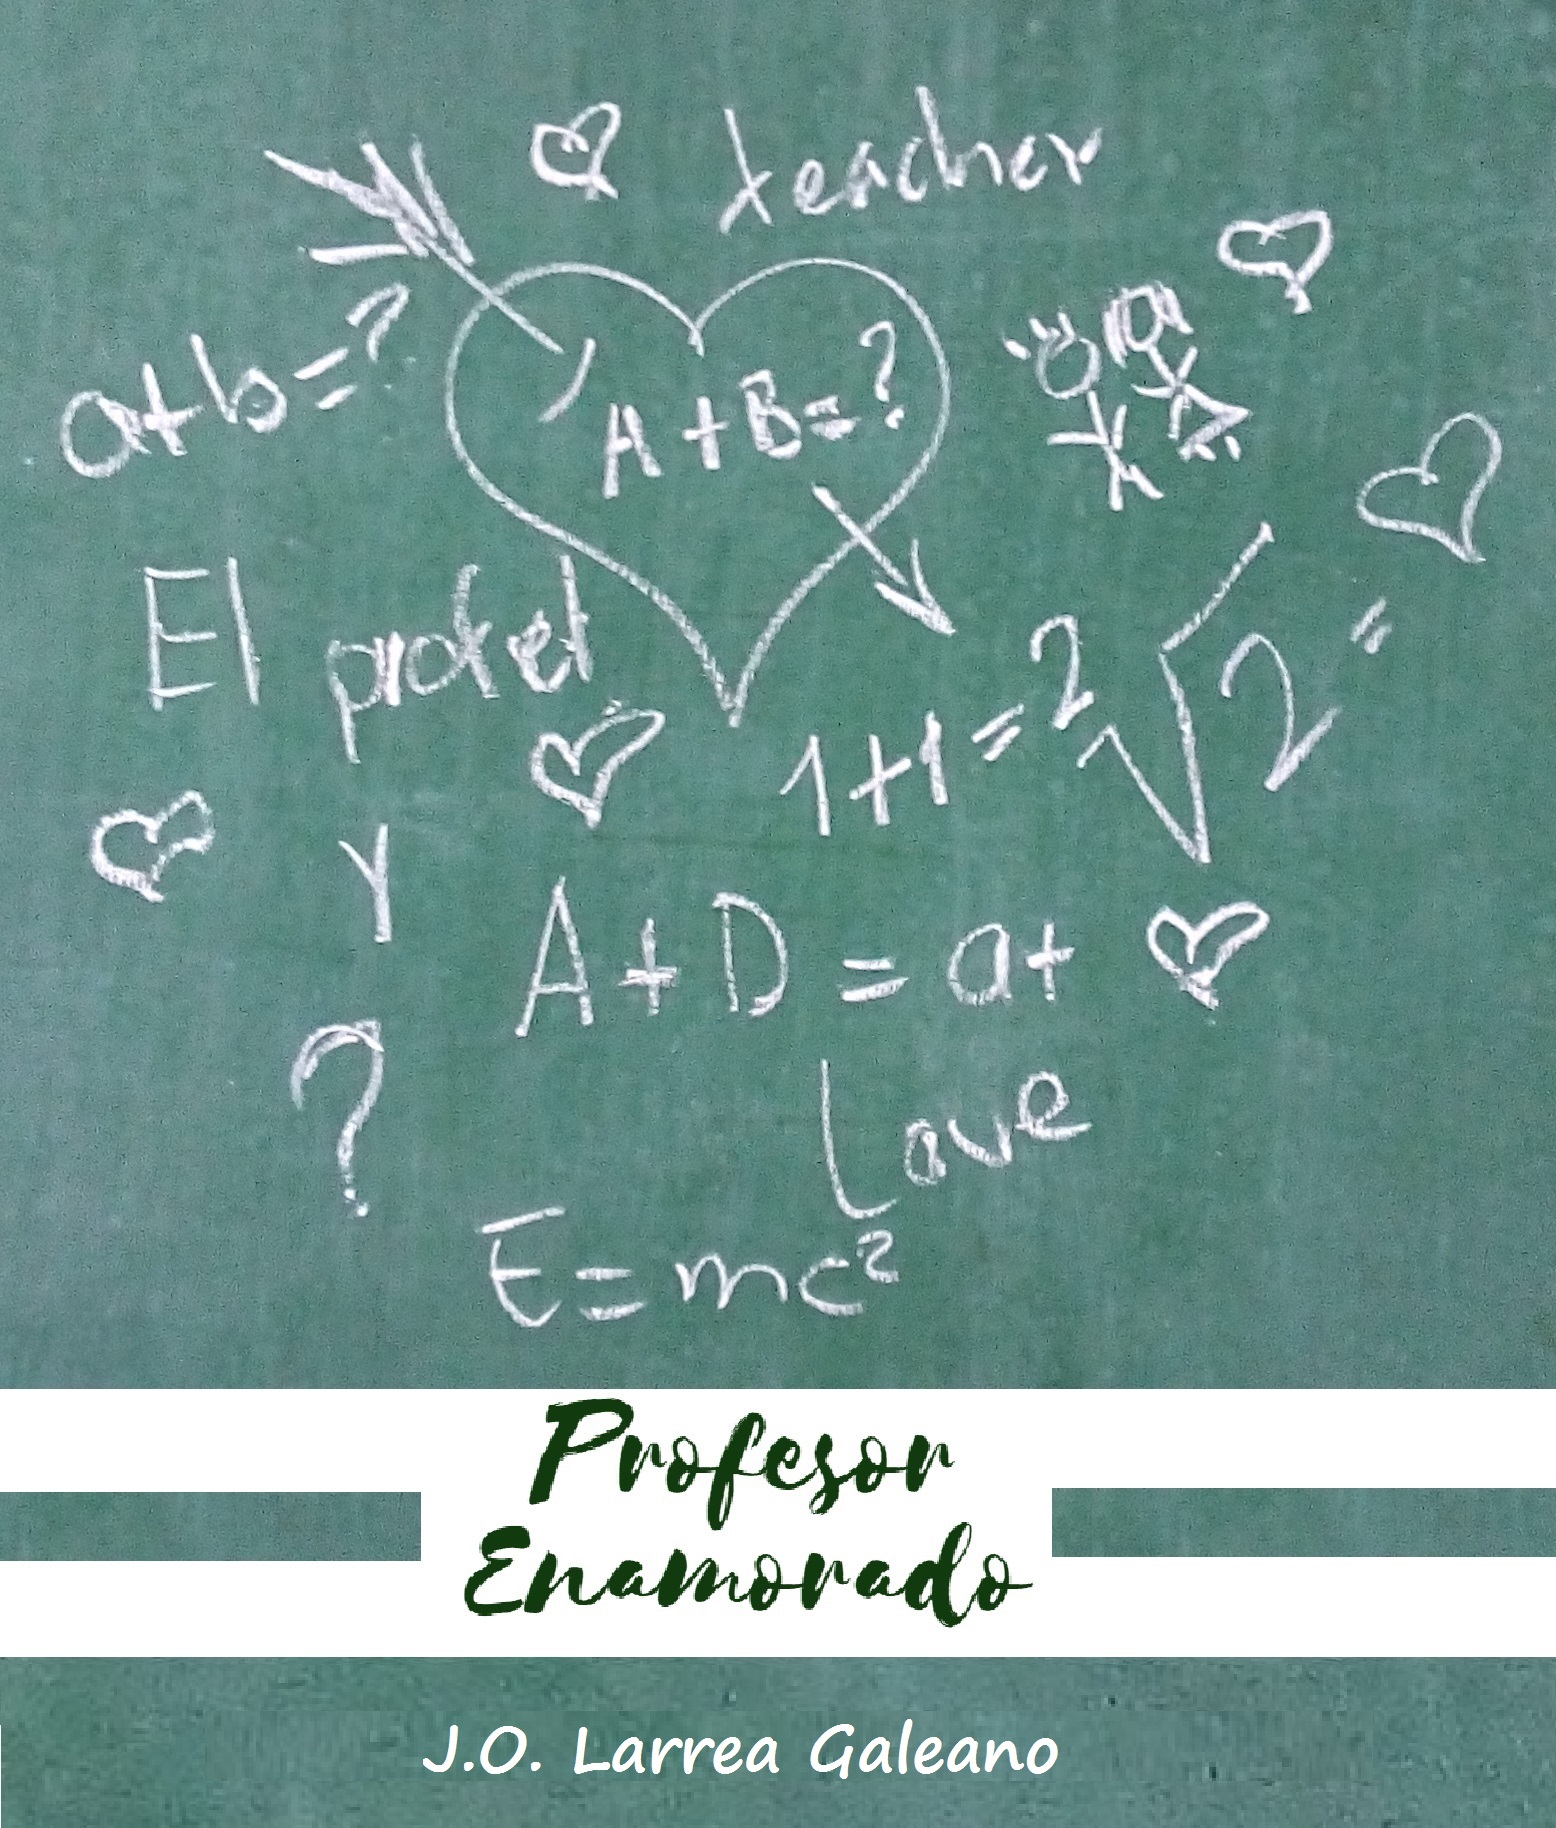 teacher
a+b=?
A+B=?
El profe
1+1=
²√2 =
Y
A+D = a+
?
Love
E=mc²
Profesor
Enamorado
J.O. Larrea Galeano